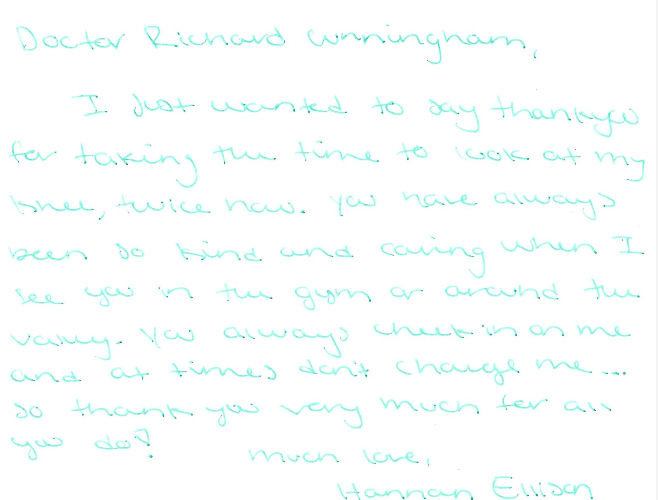 Doctor Richard Cunningham,
I just wanted to say thankyou
for taking the time to look at my
knee, twice now. You have always
been so kind and caring when I
see you in the gym or around the
valley. You always check in on me
and at times don't charge me...
so thank you very much for all
you do!
Much love,
Hannah Ellison